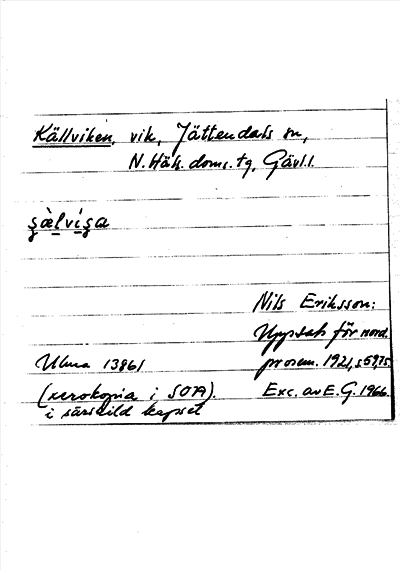 Källviken, vik, Jättendals sn,
N. Häls. doms. tg, Gävl. l.
s̨æ̀lvi̇s̨a
Nils Eriksson:
Uppsats för nord.
prosem. 1921, s 59, 75.
Ulma 1386/
(xerokopia i SOA).
i särskild kapsel
Exc. av E. G. 1966.